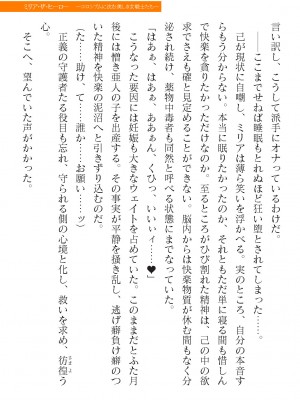 言い訳し、こうして派手にオナっているわけだ。
――ここまでせねば睡眠もとれぬほど狂い堕とされてしまった……。
己が現状に自嘲し、ミリアは薄ら笑いを浮かべる。実のところ、自分の本音す
らもう分からない。本当に眠りたかったのか、それともただ単に寝る間も惜しん
で快楽を貪りたかっただけなのか。至るところがひび割れた精神は、己の中の欲
求でさえも確と見定めることができない。脳内からは快楽物質が休む間もなく分
泌され続け、薬物中毒者も同然と呼べる状態にまでなっていた。
「はぁぁ、はぁぁ、ああぁん、くひっ、いいィィ……♥」
こうなった要因には妊娠も大きなウェイトを占めていた。このままだとふた月
後には憎き亜人の子を出産する。その事実が平静を掻き乱し、逃げ癖負け癖のつ
いた精神を快楽の泥沼へと引きずり込むのだ。
（た……助け、て……誰か……お願い……ッ）
正義の守護者たる役目も忘れ、守られる側の心境と化し、救いを求め、彷徨う
さまよ
心。
そこへ、望んでいた声がかかった。